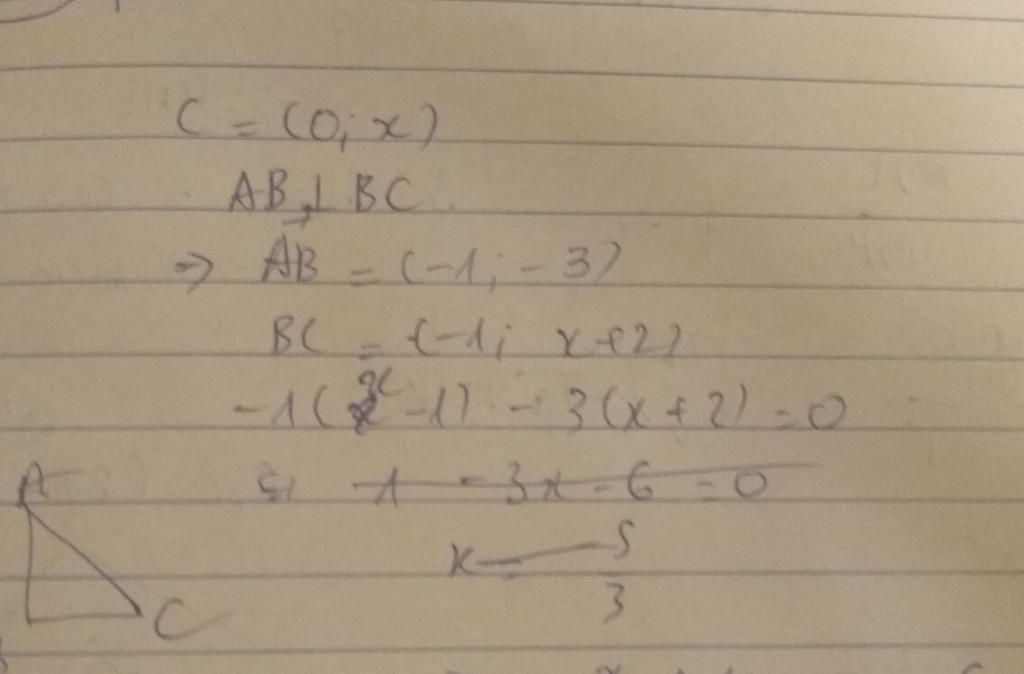 C = (0; x)
AB ⊥ BC
=> AB = (-1; -3)
BC = (-1; x+2)
-1( -1) - 3(x+2) = 0
1 - 3x - 6 = 0
x = 5/3
A
C